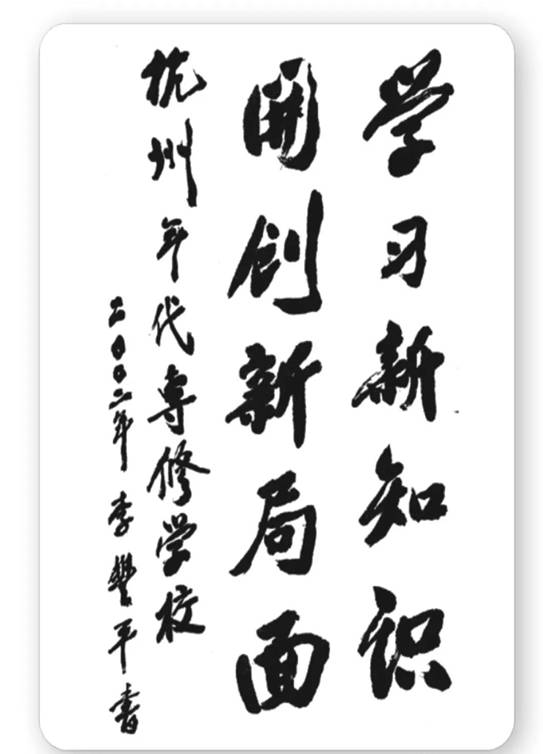 学习新知识
開创新局面
杭州年代专修学校
二〇〇二年 李豐平书